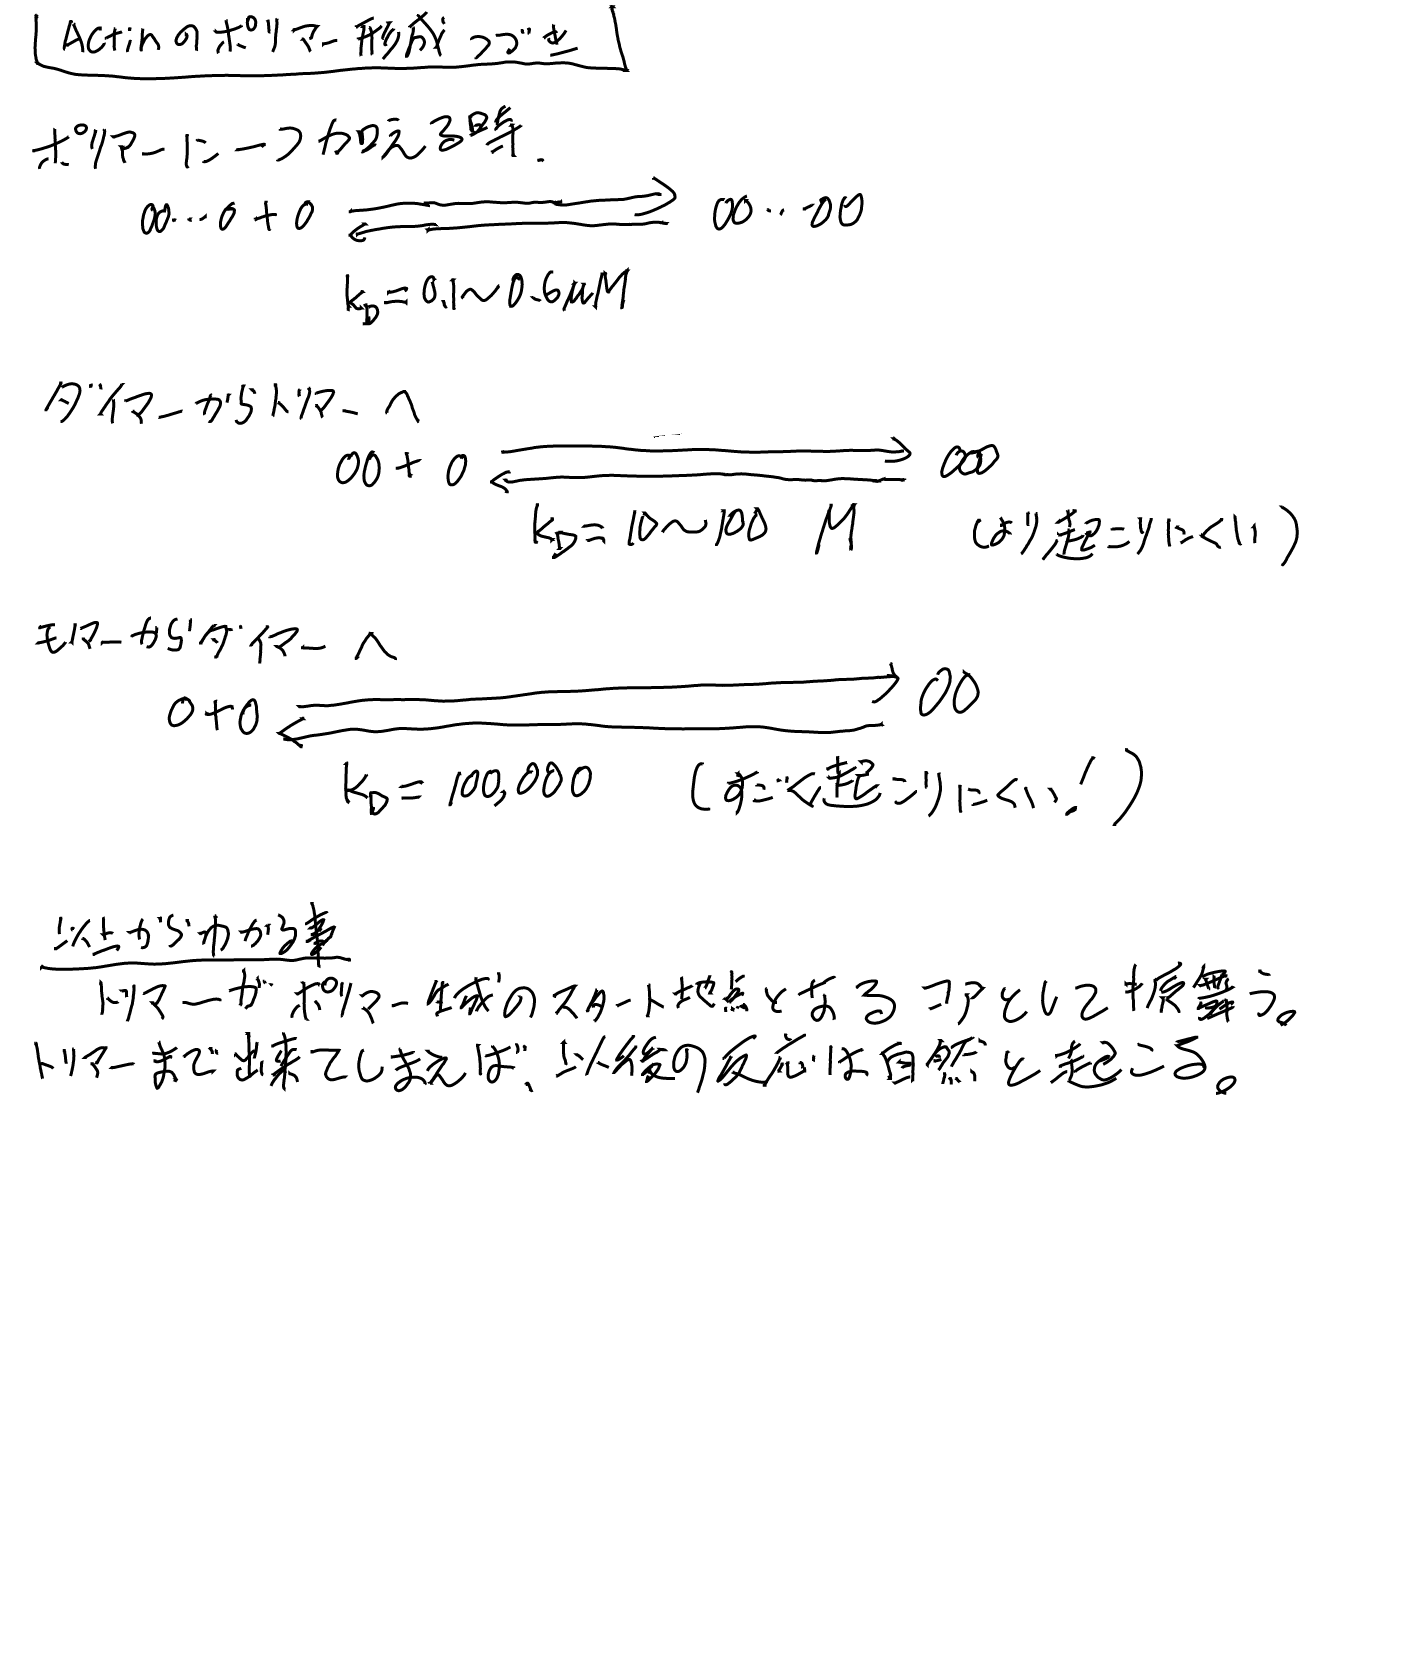 Actinのポリマー形成つづき
ポリマーに一つ加える時.
00...0 + 0 ⇄ 00...00
kD = 0.1〜0.6μM
ダイマーからトリマーへ
00 + 0 ⇄ 000
kD = 10〜100 M (より起こりにくい)
モノマーからダイマーへ
0+0 ⇄ 00
kD = 100,000 (すごく起こりにくい!)
以上からわかる事
トリマーがポリマー生成のスタート地点となるコアとして振舞う。
トリマーまで出来てしまえば、以後の反応は自然と起こる。